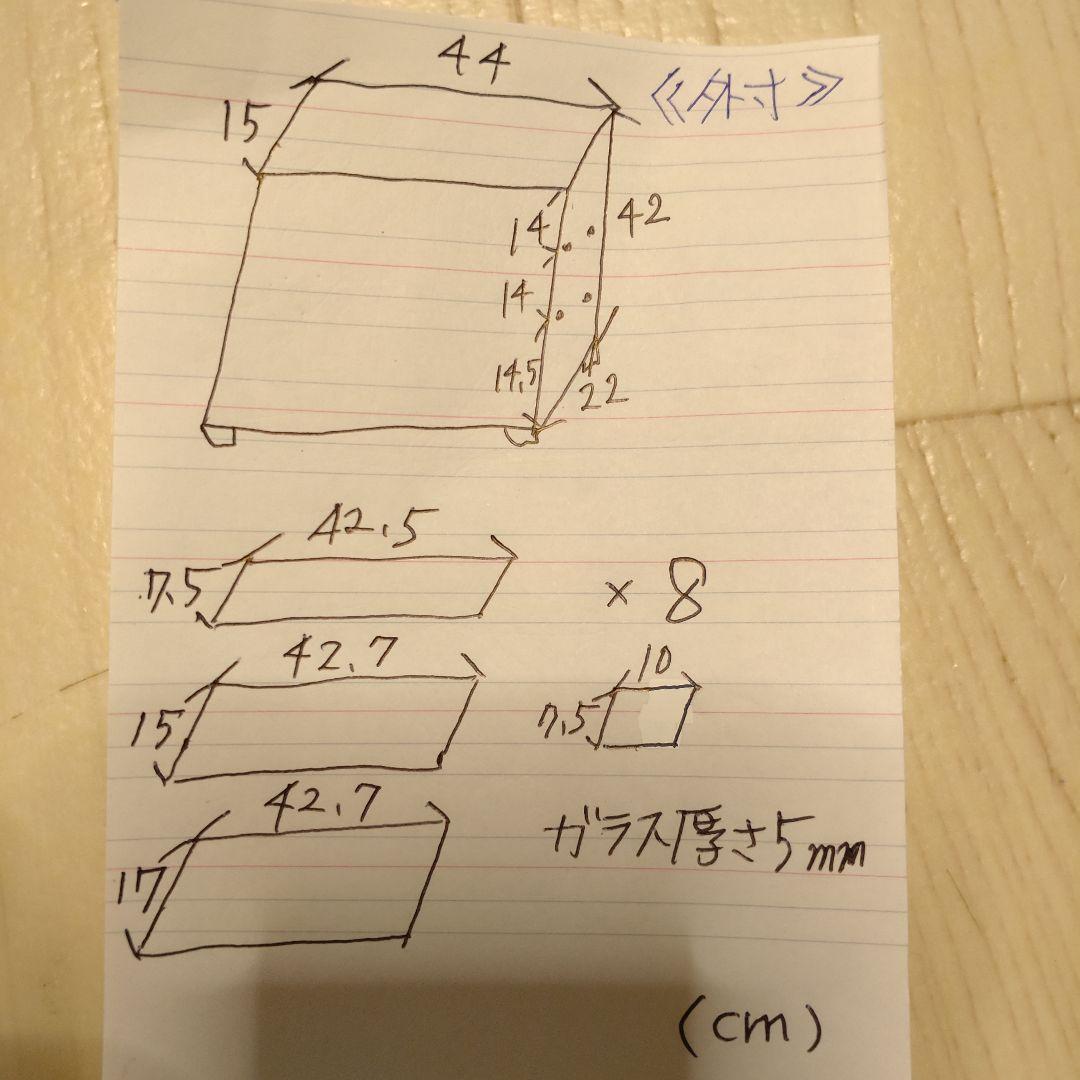 44
《外寸》
15
14
42
14
14.5
22
42.5
7.5
× 8
42.7
10
15
7.5
42.7
ガラス厚さ5mm
17
(cm)